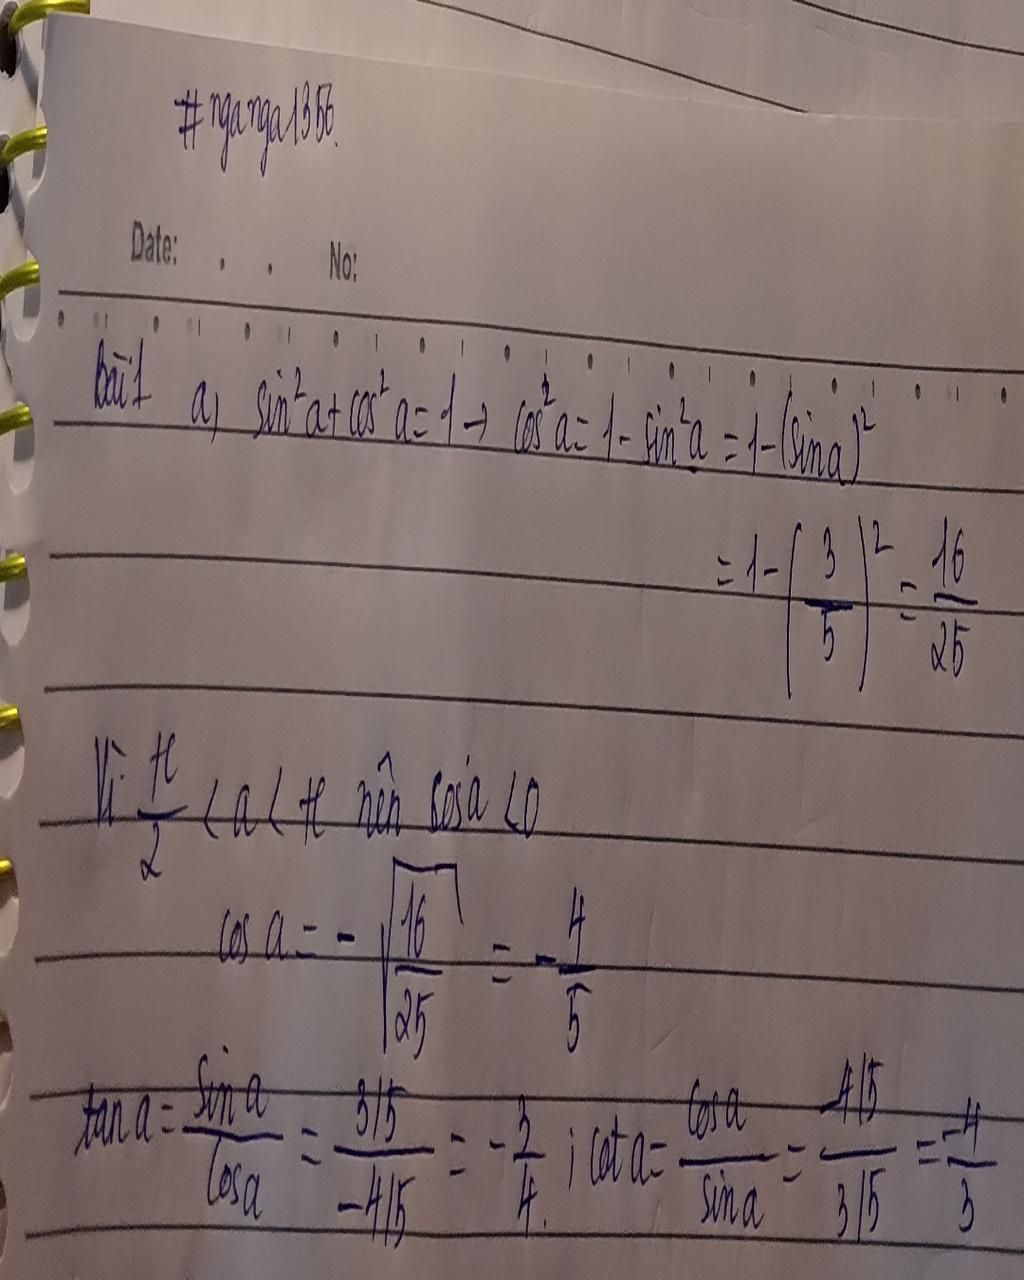 #nganga1356.
Date: . . No:
Bài 1 a) sin²a + cos²a = 1 → cos²a = 1 - sin²a = 1 - (sina)²
= 1 - (3/5)² = 16/25
Vì π/2 < a < π nên cosa < 0
cos a = - √(16/25) = - 4/5
tan a = sin a/cosa = 3/5/-4/5 = - 3/4. ; cot a = cosa/sina = -4/5/3/5 = -4/3